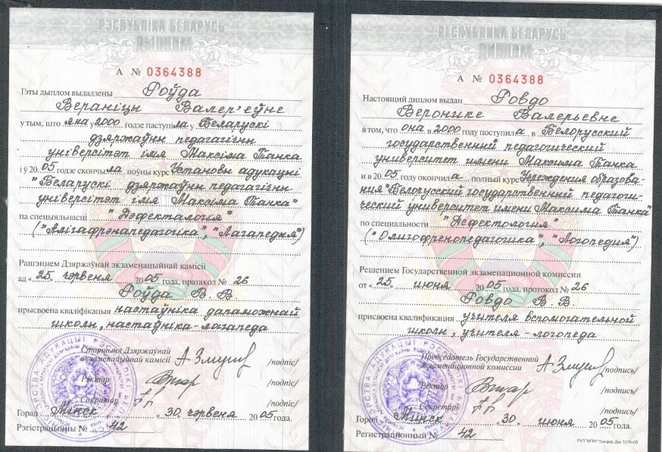 РЭСПУБЛІКА БЕЛАРУСЬ
ДЫПЛОМ
А № 0364388
Гэты дыплом выдадзены Роўда
Вераніцы Валер'еўне
у тым, што яна 2000 годзе паступіла у Беларускі
дзяржаўны педагагічны
універсітэт імя Максіма Танка
і ў 2005 годзе скончыла поўны курс Установы адукацыі
"Беларускі дзяржаўны педагагічны
універсітэт імя Максіма Танка"
па спецыяльнасці "Дэфекталогія"
("Алігафрэнапедагогіка", "Лагапедыя")
Рашэннем Дзяржаўнай экзаменацыйнай камісіі
ад «25» чэрвеня 2005 года, пратакол № 26
Роўда В. В.
прысвоена кваліфікацыя настаўніка дапаможнай
школы, настаўніка-лагапеда
Старшыня Дзяржаўнай
экзаменацыйнай камісіі /подпіс/
Рэктар /подпіс/
Сакратар /подпіс/
Горад Мінск 30 чэрвеня 2005 года.
Рэгістрацыйны № 42
РЕСПУБЛИКА БЕЛАРУСЬ
ДИПЛОМ
А № 0364388
Настоящий диплом выдан Ровдо
Веронике Валерьевне
в том, что она в 2000 году поступила в Белорусский
государственный педагогический
университет имени Максима Танка
и в 2005 году окончила полный курс Учреждения образова-
ния "Белорусский государственный педагоги-
ческий университет имени Максима Танка"
по специальности "Дефектология"
("Олигофренопедагогика", "Логопедия")
Решением Государственной экзаменационной комиссии
от «25» июня 2005 года, протокол № 26
Ровдо В. В.
присвоена квалификация учителя вспомогательной
школы, учителя-логопеда
Председатель Государственной
экзаменационной комиссии /подпись/
Ректор /подпись/
Секретарь /подпись/
Город Минск 30 июня 2005 года.
Регистрационный № 42